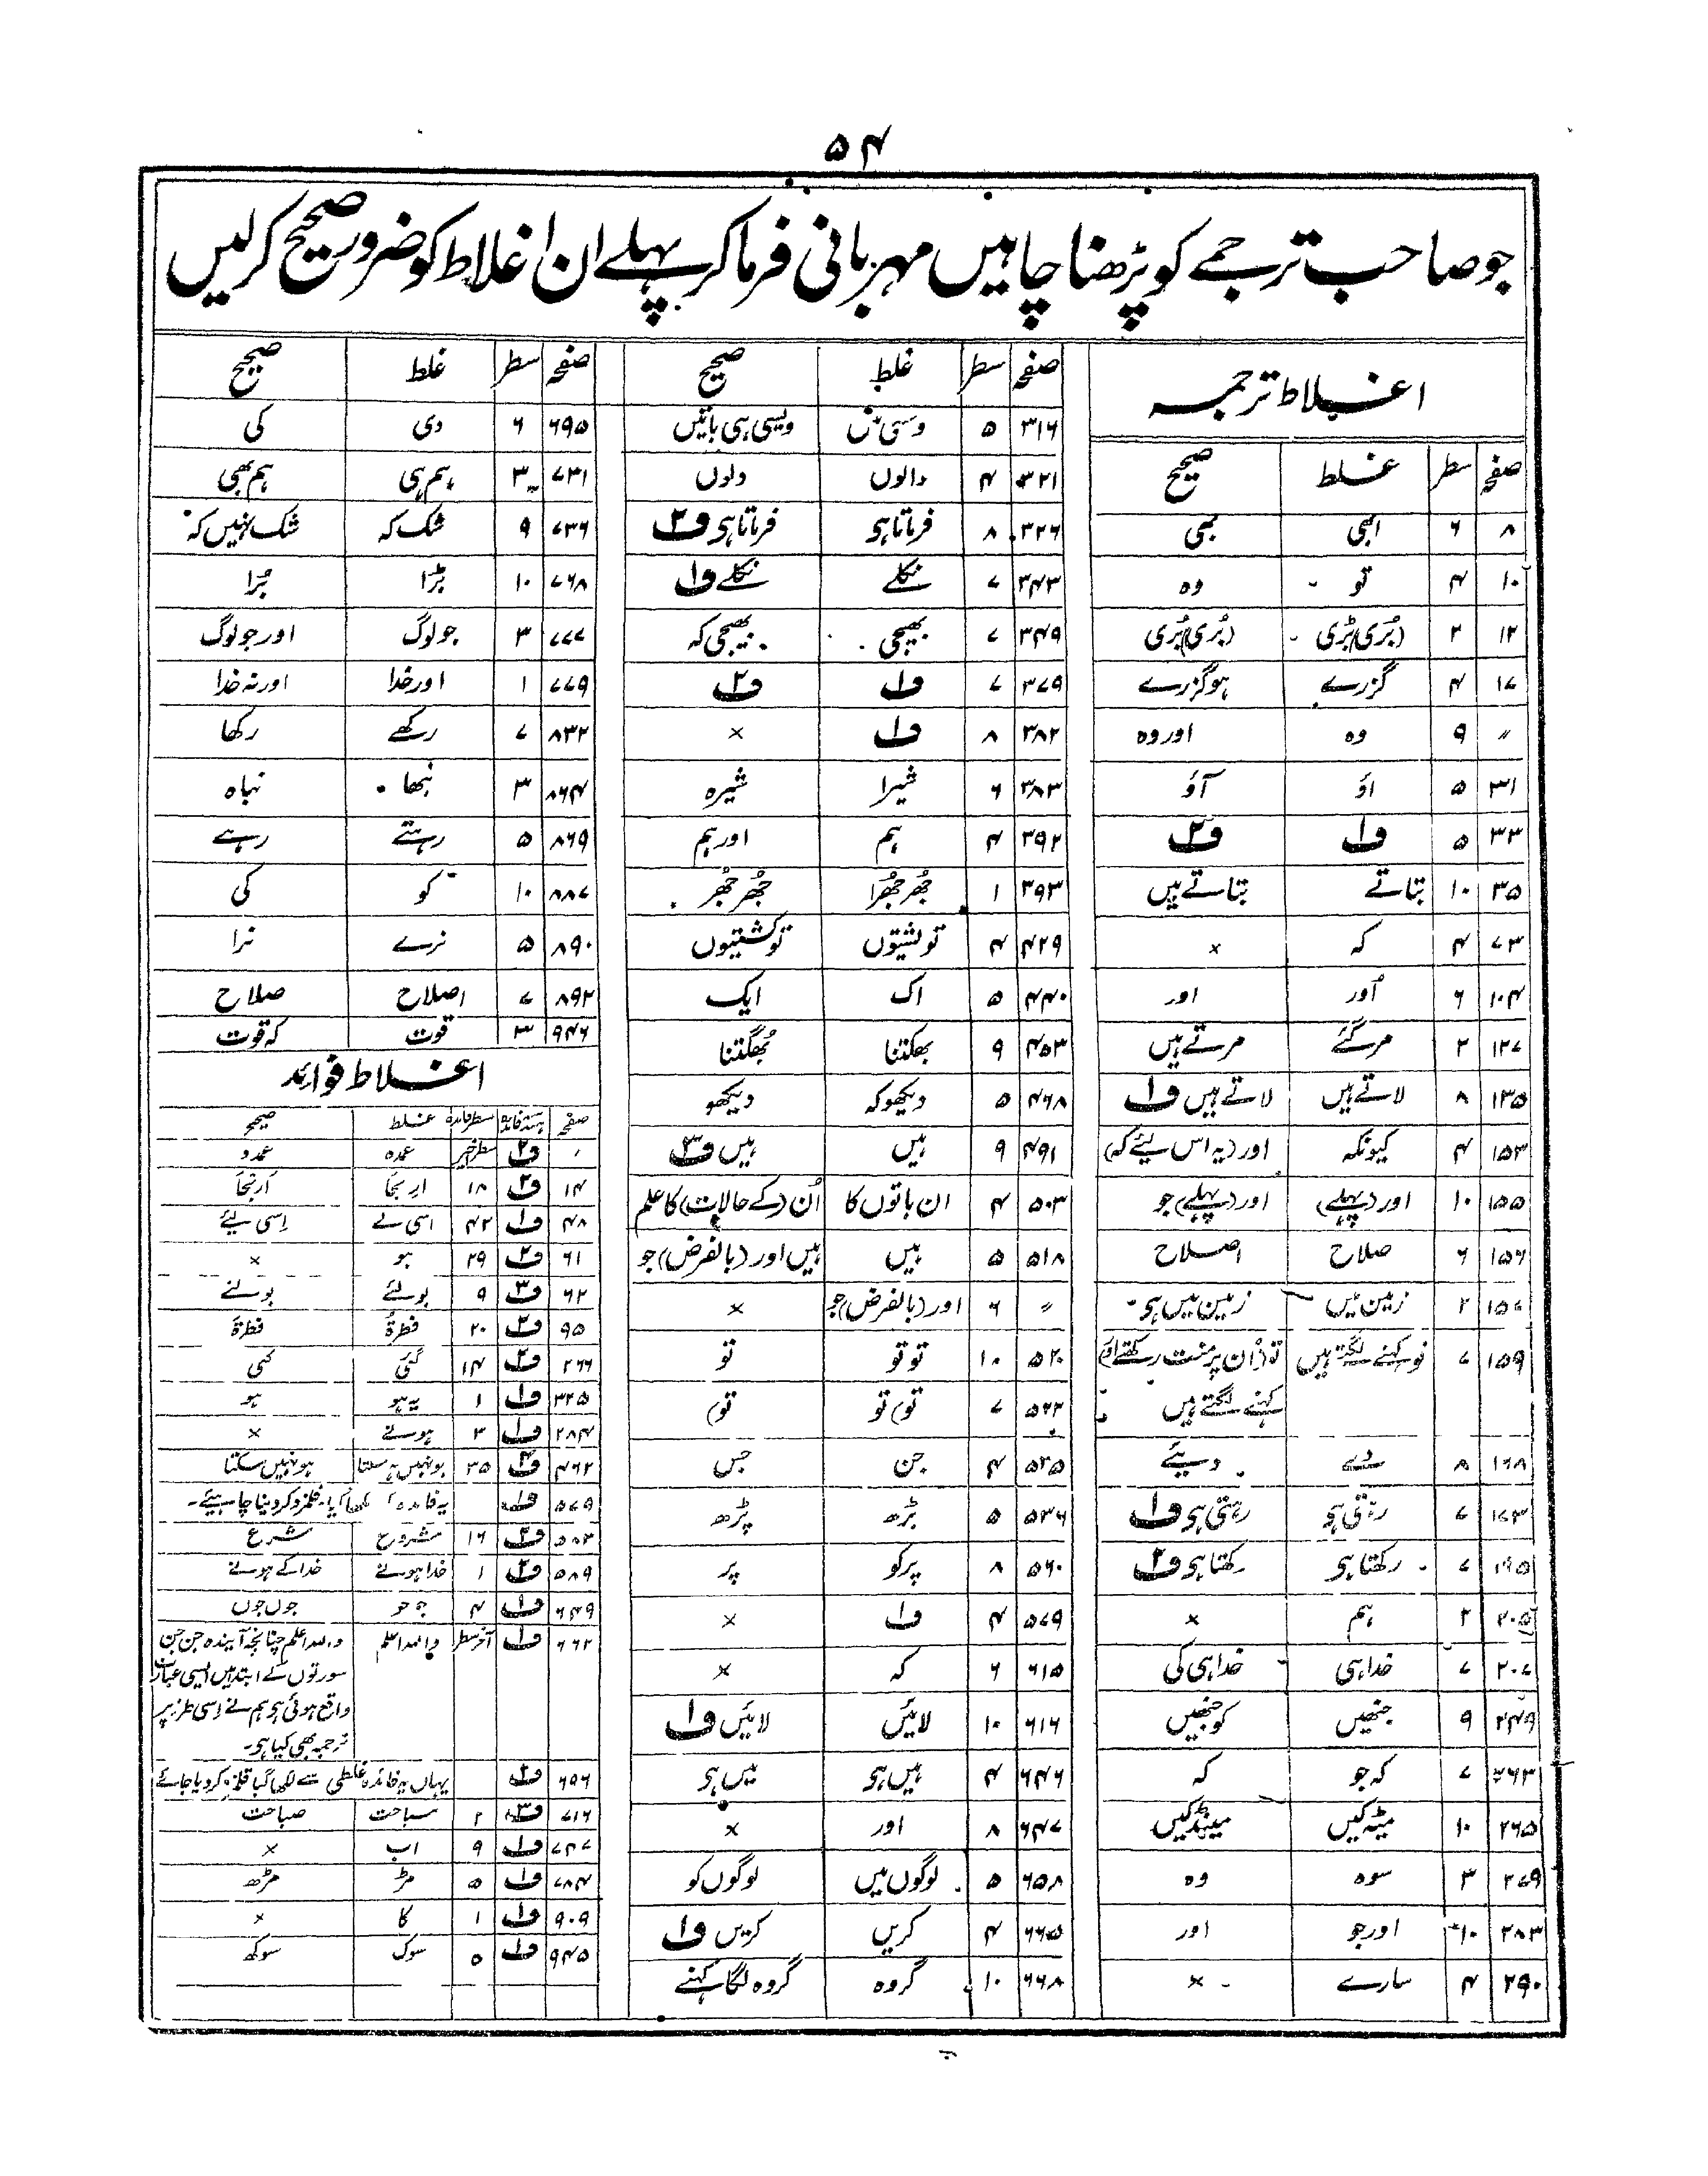 ۵۴
جو صاحب ترجمے کو پڑھنا چاہیں مہربانی فرما کر پہلے ان اغلاط کو ضرور صحیح کرلیں
اغلاط ترجمہ
صفحہ سطر غلط صحیح
۸ ۶ ابھی بھی
۱۰ ۴ تو وہ
۱۲ ۲ (بُری) بڑی (بُری) بُری
۱۷ ۴ گزرے ہو گزرے
〃 ۹ وہ اور وہ
۳۱ ۵ اؤ آؤ
۳۳ ۵ ف۱ ف۲
۳۵ ۱۰ بتاتے بتاتے ہیں
۷۳ ۴ کہ ×
۱۰۴ ۶ اَور اور
۱۲۷ ۲ مر گئے مرتے ہیں
۱۳۵ ۸ لاتے ہیں لاتے ہیں ف۱
۱۵۳ ۴ کیونکہ اور (یہ اس لیے کہ)
۱۵۵ ۱۰ اور (پہلے) اور (پہلے) جو
۱۵۶ ۶ صلاح اصلاح
۱۵۷ ۲ زمین میں زمین میں ہی
۱۵۹ ۷ تو کہنے لگتے ہیں تو (اُن پر منت رکھتے اور)
کہنے لگتے ہیں
۱۶۸ ۸ دے دیئے
۱۷۳ ۷ رہتی ہی رہتی ہی ف۱
۱۹۵ ۷ رکھتا ہی رکھتا ہی ف۲
۲۰۵ ۲ ہم ×
۲۰۷ ۷ خدا ہی خدا ہی کی
۲۴۹ ۹ جنھیں کو جنھیں
۲۶۳ ۷ کہ جو کہ
۲۶۵ ۱۰ میٹڈکیں مینڈکیں
۲۷۹ ۳ سوہ وہ
۲۸۳ ۱۰ اور جو اور
۲۹۰ ۴ سارے ×
صفحہ سطر غلط صحیح
۳۱۶ ۵ ویسی ہی باتیں
۳۲۱ ۴ دالوں دلوں
۳۲۶ ۸ فرماتا ہی فرماتا ہی ف۲
۳۴۳ ۷ نکلے نکلے ف۱
۳۴۹ ۷ بھیجی بھیجی کہ
۳۷۹ ۷ ف۱ ف۲
۳۸۲ ۸ ف۱ ×
۳۸۳ ۶ شیرا شیرہ
۳۹۲ ۴ ہم اور ہم
۳۹۳ ۱ جُھر جُھرا جُھر جُھر
۴۲۹ ۴ تو کشتیوں
۴۴۰ ۵ اک ایک
۴۵۳ ۹ بھکتنا بُھگتنا
۴۶۸ ۵ دیکھو کہ دیکھو
۴۹۱ ۹ ہیں ہیں ف۳
۵۰۳ ۴ ان باتوں کا اُن (کے حالات) کا علم
۵۱۸ ۵ ہیں ہیں اور (بالفرض) جو
〃 ۶ اور (بالفرض) جو ×
۵۲۰ ۱۰ تو تو تو
۵۲۳ ۷ تو) تو تو)
۵۲۵ ۴ جن جس
۵۳۶ ۵ بڑھ پڑھ
۵۶۰ ۸ پرکو پر
۵۷۹ ۴ ف۱ ×
۶۱۵ ۶ کہ ×
۶۱۶ ۱۰ لائیں لائیں ف۱
۶۴۶ ۴ ہیں ہی میں ہی
۶۴۷ ۸ اور ×
۶۵۸ ۵ لوگوں میں لوگوں کو
۶۶۵ ۴ کریں کریں ف۱
۶۶۸ ۱۰ گروہ گروہ لگا کہنے
صفحہ سطر غلط صحیح
۶۹۵ ۶ دی کی
۷۳۱ ۳ ہم ہی ہم بھی
۷۳۶ ۹ شک کہ شک نہیں کہ
۷۶۸ ۱۰ بڑا بُرا
۷۷۷ ۳ جو لوگ اور جو لوگ
۷۷۹ ۱ اور خدا اور نہ خدا
۸۳۲ ۷ رکھے رکھا
۸۶۴ ۳ نبھا نباہ
۸۶۹ ۵ رہتے رہے
۸۸۷ ۱۰ کو کی
۸۹۰ ۵ نرے نرا
۸۹۲ ۷ اصلاح صلاح
۹۴۶ ۳ قوت کہ قوت
اغلاط فوائد
صفحہ ہندسۂ فائدہ سطر فائدہ غلط صحیح
ف۲ سطر اخیر عمدہ عمدو
۱۴ ف۲ ۱۸ اربجا اَرنجاَ
۴۸ ف۱ ۴۲ اسی لے اِسی لیے
۶۱ ف۲ ۲۹ ہو ×
۶۲ ف۳ ۹ بولئے بولنے
۹۵ ف۲ ۲۰ فطرۃُ فطرۃَ
۲۶۶ ف۲ ۱۴ گئی کئی
۳۲۵ ف۱ ۱ یہ ہو ہو
۲۸۴ ف۱ ۳ ہونے ×
۴۶۲ ف۲ ۳۵ ہو نہیں سکتا
۵۷۹ ف۱ یہ فائدہ لکھا گیا۔ قلمزد کر دینا چاہیئے۔
۵۸۳ ف۲ ۱۶ مشروح شرع
۵۸۹ ف۲ ۱ خدا ہونے خدا کے ہونے
۶۴۹ ف۱ ۴ جوں جوں
۶۶۲ ف۱ آخر سطر واللہ اعلم واللہ اعلم چنانچہ آیندہ جن جن
سورتوں کے ابتدا میں ایسی عبارت
واقع ہوئی ہی ہم نے اِسی طرز پر
ترجمہ بھی کیا ہی۔
۶۵۶ ف۲ یہاں یہ فائدہ غلطی سے لکھا گیا قلمزد کر دیا جائے
۷۱۶ ف۳ ۲ سباحت صباحت
۷۴۷ ف۱ ۹ اب ×
۷۸۴ ف۱ ۵ مڑ مڑھ
۹۰۹ ف۱ ۱ کا ×
۹۴۵ ف۱ ۵ سوک سوکھ